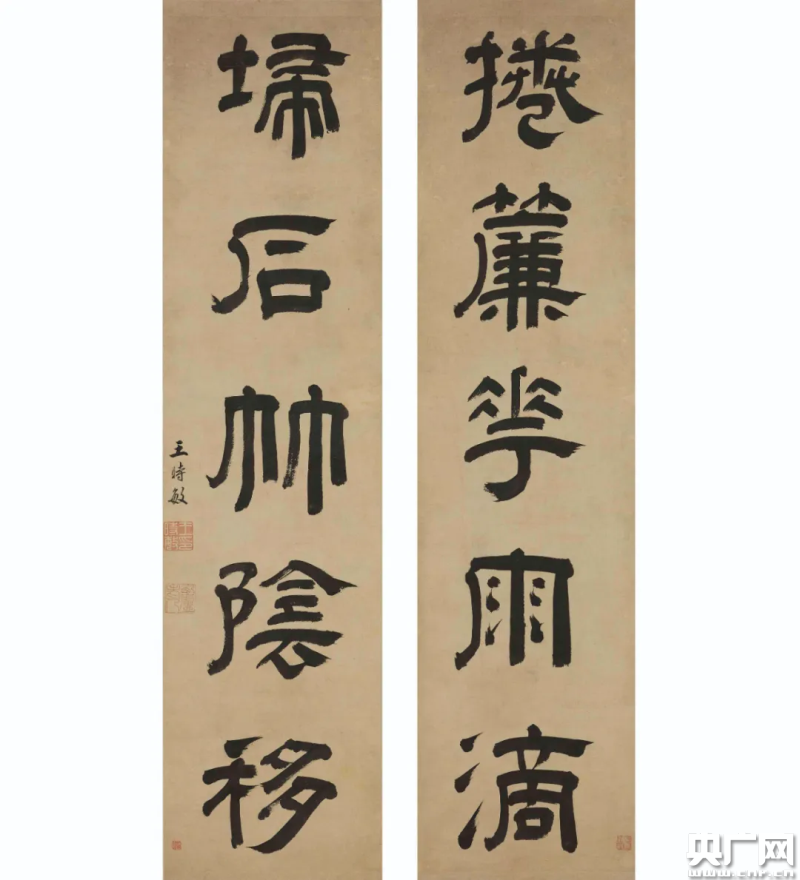 捲簾花雨滴
埽石竹陰移
王時敏
央广网
www.cnr.cn